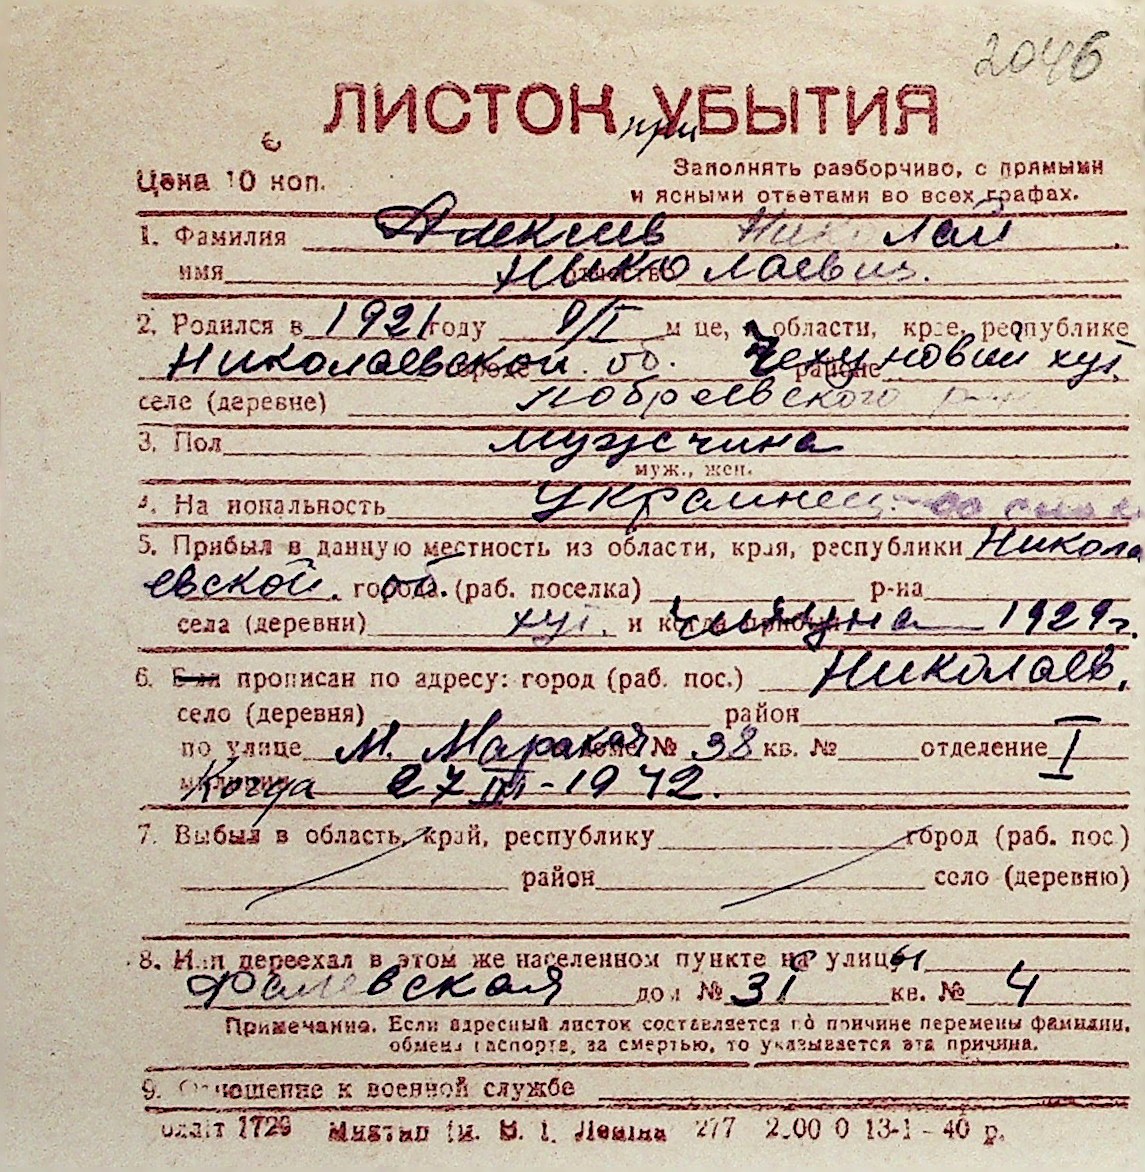 2046
ЛИСТОК при УБЫТИЯ
Цена 10 коп.
Заполнять разборчиво, с прямыми
и ясными ответами во всех графах.
1. Фамилия Алексеев Николай
имя отчество Николаевич.
2. Родился в 1921 году 9/I м-це, в области, крае, республике
Николаевской об. городе районе новый хут.
селе (деревне)
3. Пол мужчина
муж., жен.
4. Национальность украинец
5. Прибыл в данную местность из области, края, республики Никола
евской об. города (раб. поселка) р-на
села (деревни) хут. и когда прибыл 1929 г.
6. Был прописан по адресу: город (раб. пос.) Николаев.
село (деревня) район
по улице М. Морская доме № 38 кв. № отделение I
милиции Когда 27 III - 1942.
7. Выбыл в область, край, республику город (раб. пос.)
район село (деревню)
8. Или переехал в этом же населенном пункте на улицы
Фалеевская дом № 31 кв. № 4
Примечание. Если адресный листок составляется по причине перемены фамилии,
обмена паспорта, за смертью, то указывается эта причина.
9. Отношение к военной службе
1729 им. В. І. Леніна 277 13-1 - 40 р.